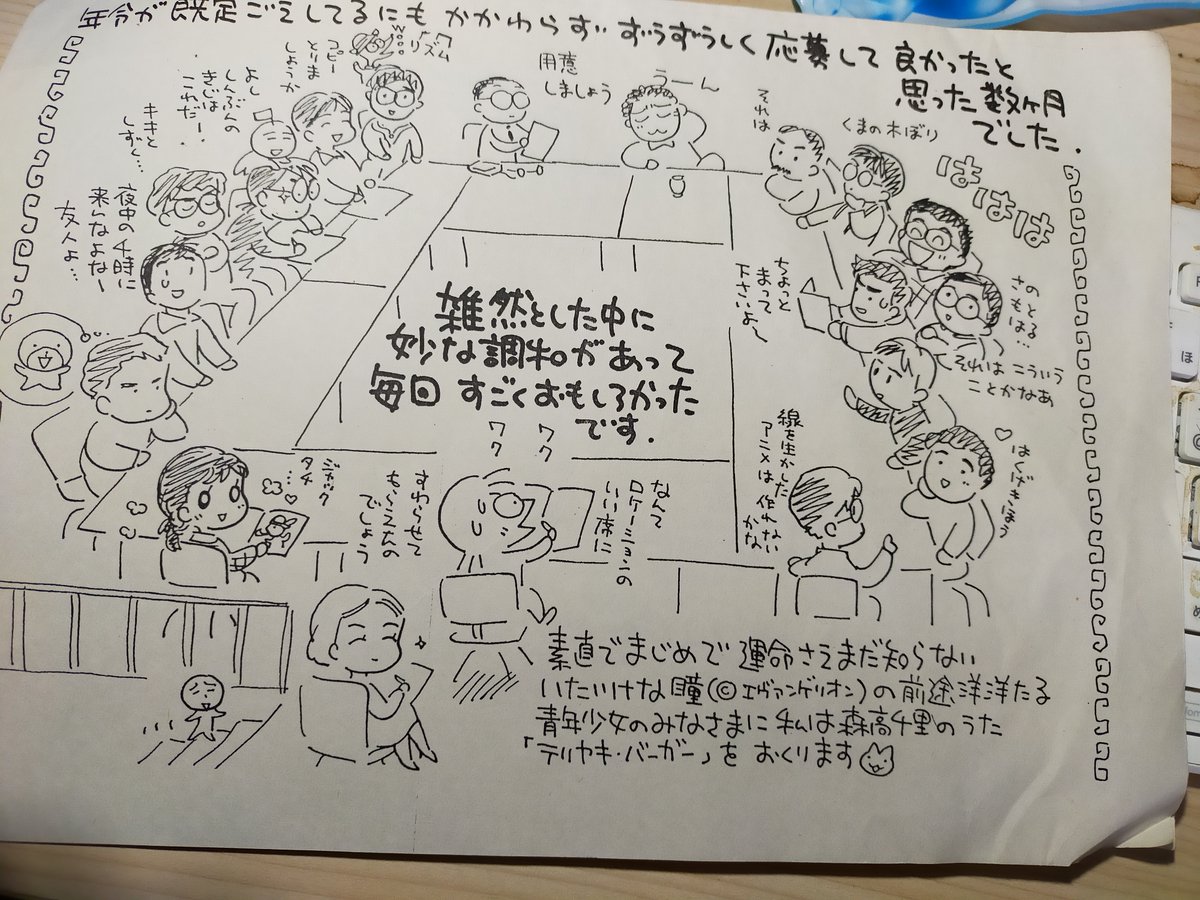 年令が既定ごえしてるにもかかわらず ずうずうしく応募して良かったと
思った数ヶ月
でした.
リズム
コピー
とりま
しょうか
よし
しんぶんの
きじは
これだー!
キキと
しずく…
夜中の4時に
来んなよなー
友人よ…
用意
しましょう
うーん
それは
くまの木ぼり
ははは
ちょっと
まって
下さいよ〜
さのもとはる…
それは こういう
ことかなあ
♡はくげきほう
線を生かした
アニメは作れない
かな
雑然とした中に
妙な調和があって
毎回 すごくおもしろかった
です.
ワク
ワク
なんて
ロケーションの
いい席に
すわらせて
もらえたの
でしょう
ジャック
タチ
…♡
素直でまじめで 運命さえまだ知らない
いたいけな瞳(©エヴァンゲリオン)の前途洋洋たる
青年少女のみなさまに 私は森高千里のうた
「テリヤキ・バーガー」を おくります